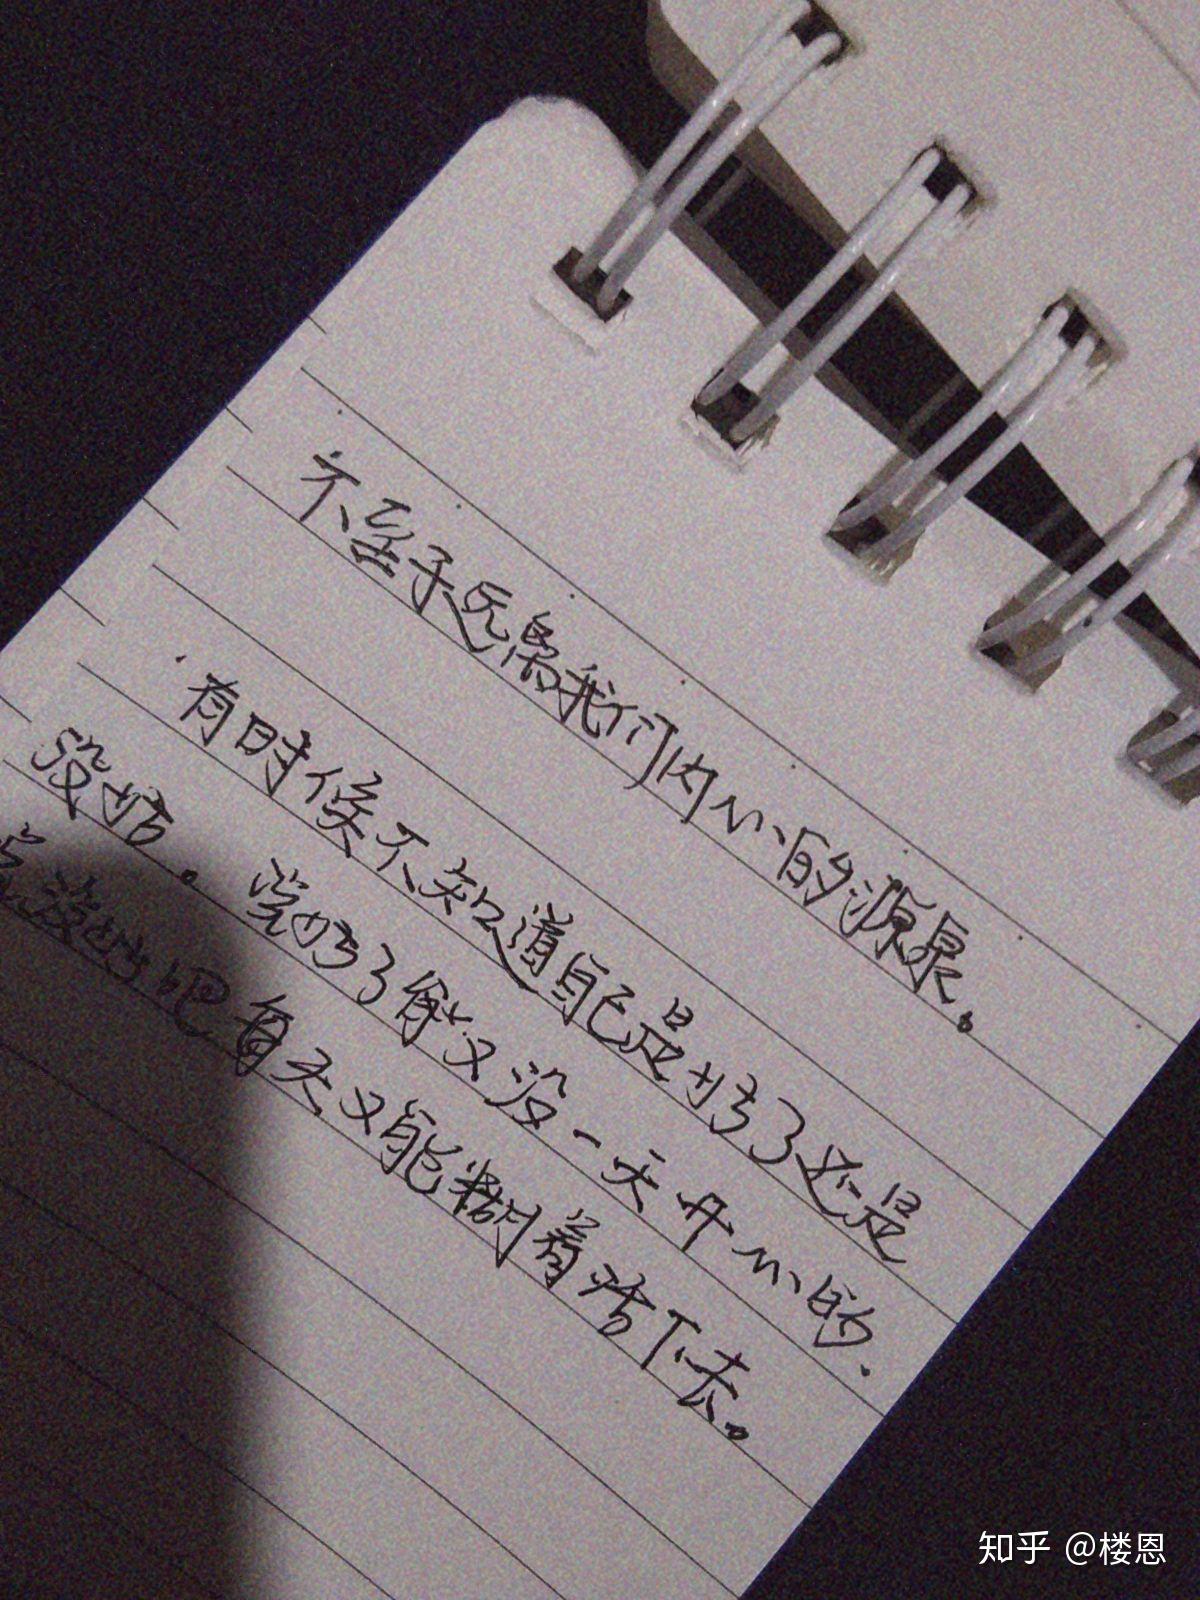 不至于远离我们内心的源泉。
有时候不知道自己是好了还是
没好。说好了能又没一天开心的.
说没好吧每天又能糊着活下去。
知乎 @楼恩